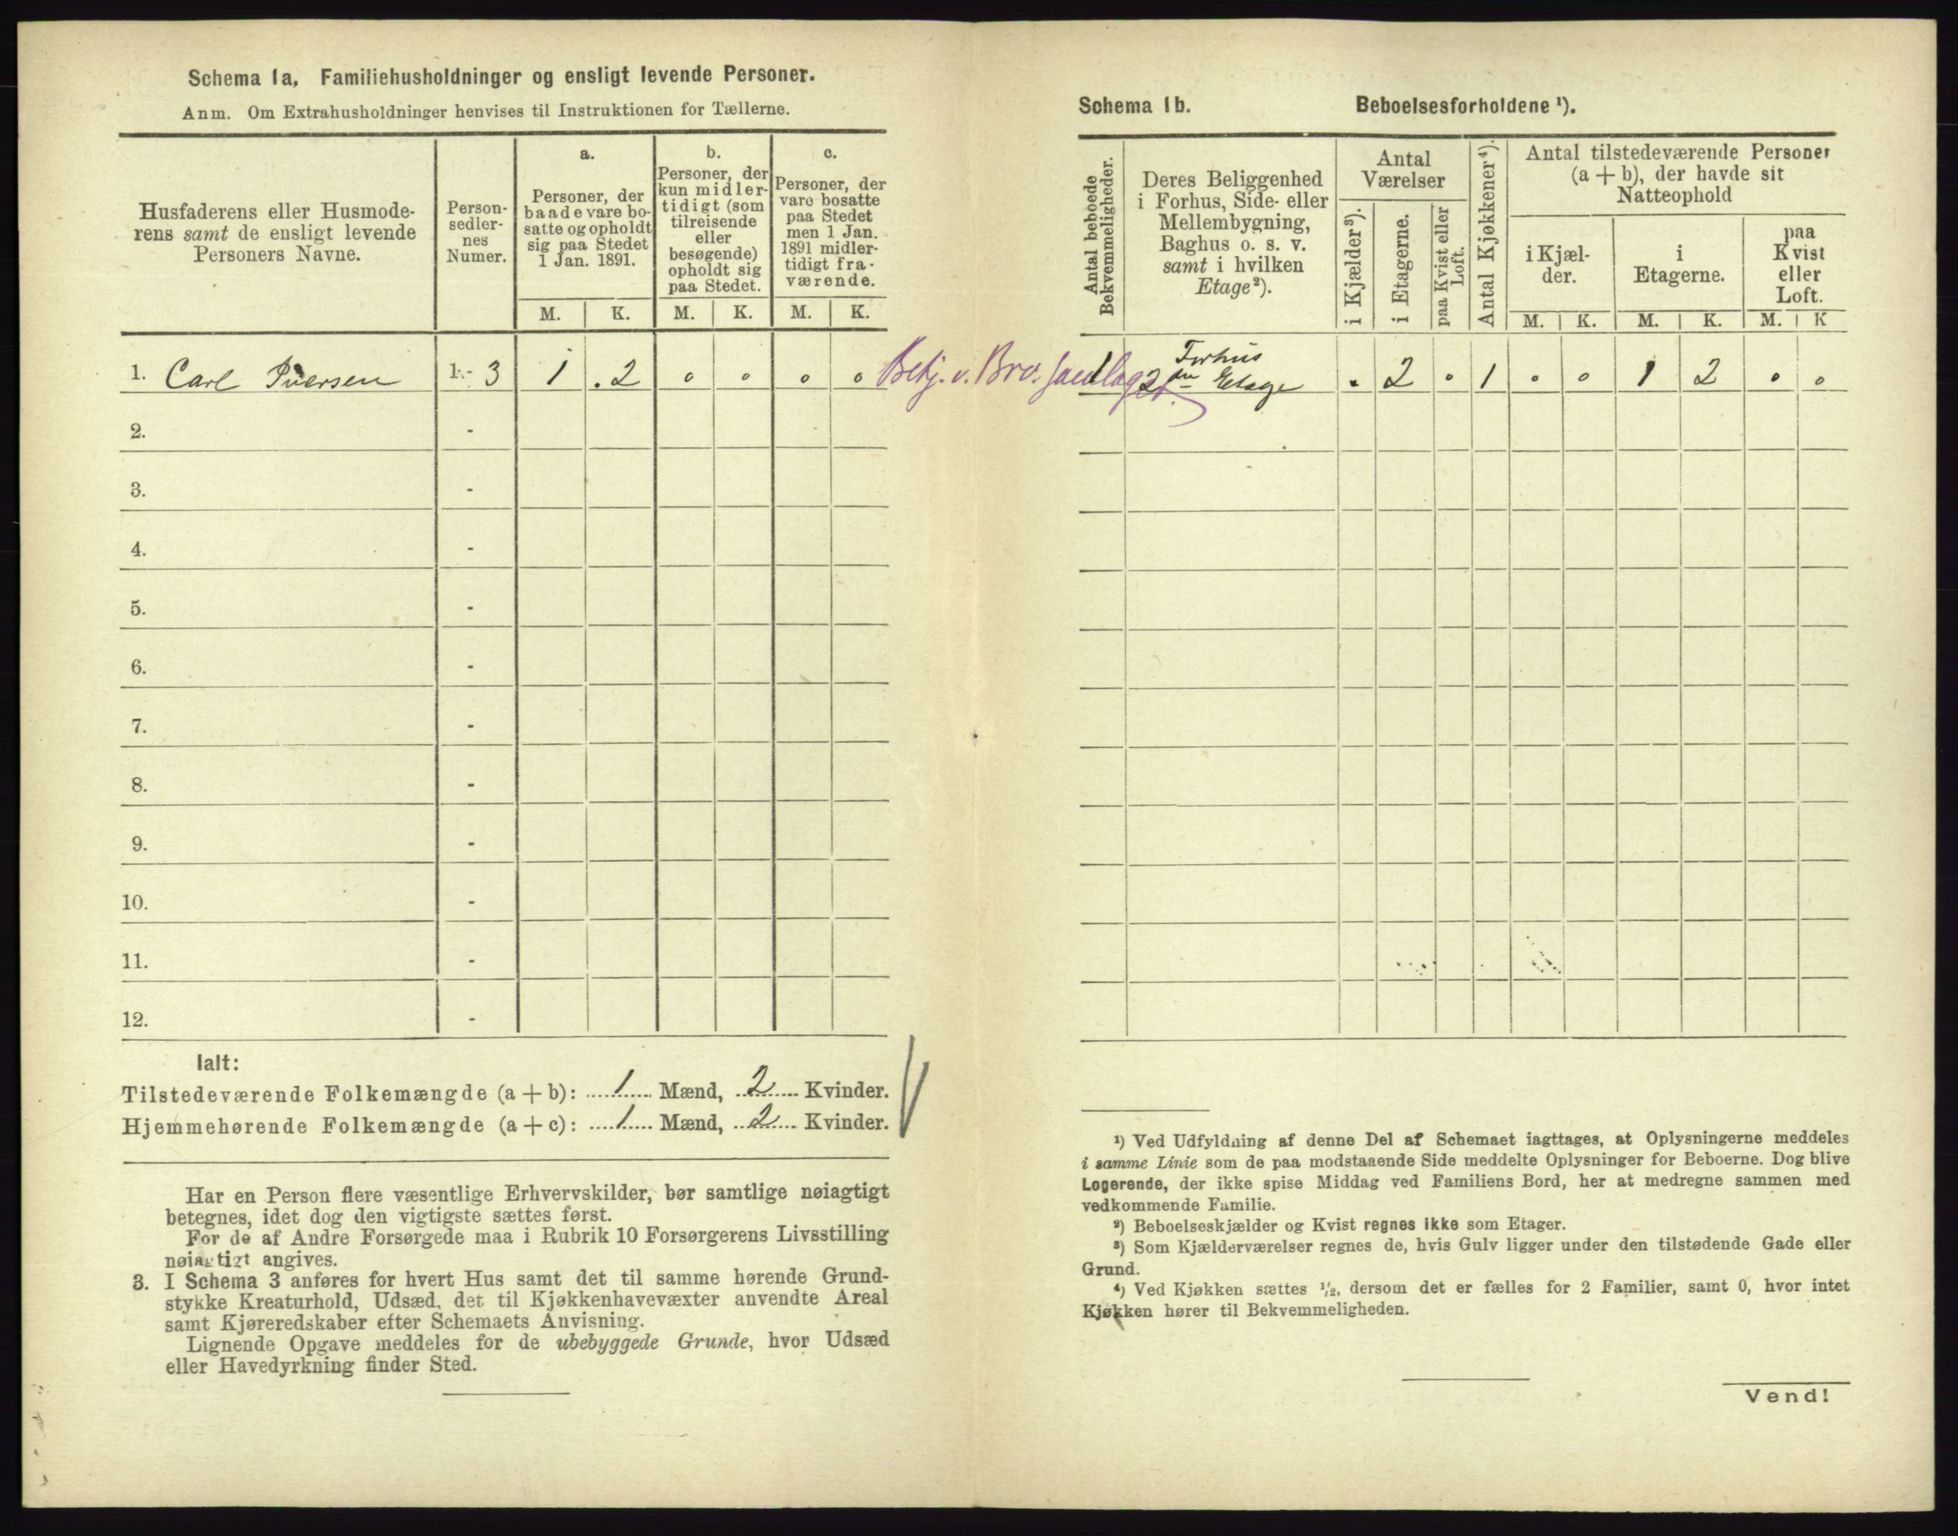 Schema 1a. Familiehusholdninger og ensligt levende Personer.
Anm. Om Extrahusholdninger henvises til Instruktionen for Tællerne.
Husfaderens eller Husmode-
rens samt de ensligt levende
Personers Navne.
Person-
sedler-
nes
Numer.
a.
Personer, der
baade vare bo-
satte og opholdt
sig paa Stedet
1 Jan. 1891.
b.
Personer, der
kun midler-
tidigt (som
tilreisende
eller
besøgende)
opholdt sig
paa Stedet.
c.
Personer, der
vare bosatte
paa Stedet
men 1 Jan.
1891 midler-
tidigt fra-
værende.
M. K. M. K. M. K.
1. Carl Iversen 1 - 3 1 . 2 0 0 0 0
2. -
3. -
4. -
5. -
6. -
7. -
8. -
9. -
10. -
11. -
12. -
Ialt:
Tilstedeværende Folkemængde (a + b): 1 Mænd, 2 Kvinder.
Hjemmehørende Folkemængde (a + c): 1 Mænd, 2 Kvinder.
Har en Person flere væsentlige Erhvervskilder, bør samtlige nøiagtigt
betegnes, idet dog den vigtigste sættes først.
For de af Andre Forsørgede maa i Rubrik 10 Forsørgerens Livsstilling
nøiagtigt angives.
3. I Schema 3 anføres for hvert Hus samt det til samme hørende Grund-
stykke Kreaturhold, Udsæd, det til Kjøkkenhavevæxter anvendte Areal
samt Kjøreredskaber efter Schemaets Anvisning.
Lignende Opgave meddeles for de ubebyggede Grunde, hvor Udsæd
eller Havedyrkning finder Sted.
Schema 1b. Beboelsesforholdene ¹).
Antal beboede
Bekvemmeligheder.
Deres Beliggenhed
i Forhus, Side- eller
Mellembygning,
Baghus o. s. v.
samt i hvilken
Etage²).
Antal
Værelser
i Kjælder³).
i Etagerne.
paa Kvist eller
Loft.
Antal Kjøkkener⁴).
Antal tilstedeværende Personer
(a + b), der havde sit
Natteophold
i Kjæl-
der.
i
Etagerne.
paa
Kvist
eller
Loft.
M. K. M. K. M. K
Bekj. v.
1 Forhus
2den Etage . 2 . 1 0 0 1 2 0 0
¹) Ved Udfyldning af denne Del af Schemaet iagttages, at Oplysningerne meddeles
i samme Linie som de paa modstaaende Side meddelte Oplysninger for Beboerne. Dog blive
Logerende, der ikke spise Middag ved Familiens Bord, her at medregne sammen med
vedkommende Familie.
²) Beboelseskjælder og Kvist regnes ikke som Etager.
³) Som Kjælderværelser regnes de, hvis Gulv ligger under den tilstødende Gade eller
Grund.
⁴) Ved Kjøkken sættes ½, dersom det er fælles for 2 Familier, samt 0, hvor intet
Kjøkken hører til Bekvemmeligheden.
Vend!